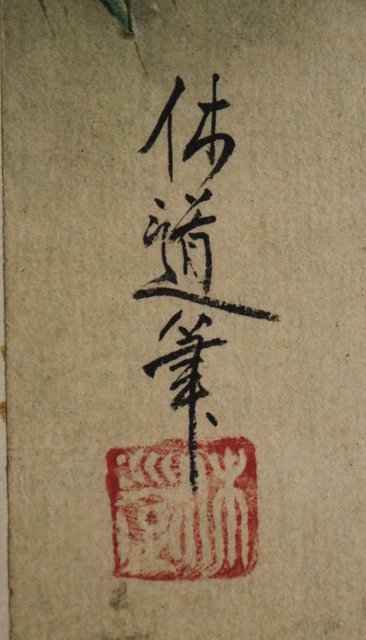 休道筆